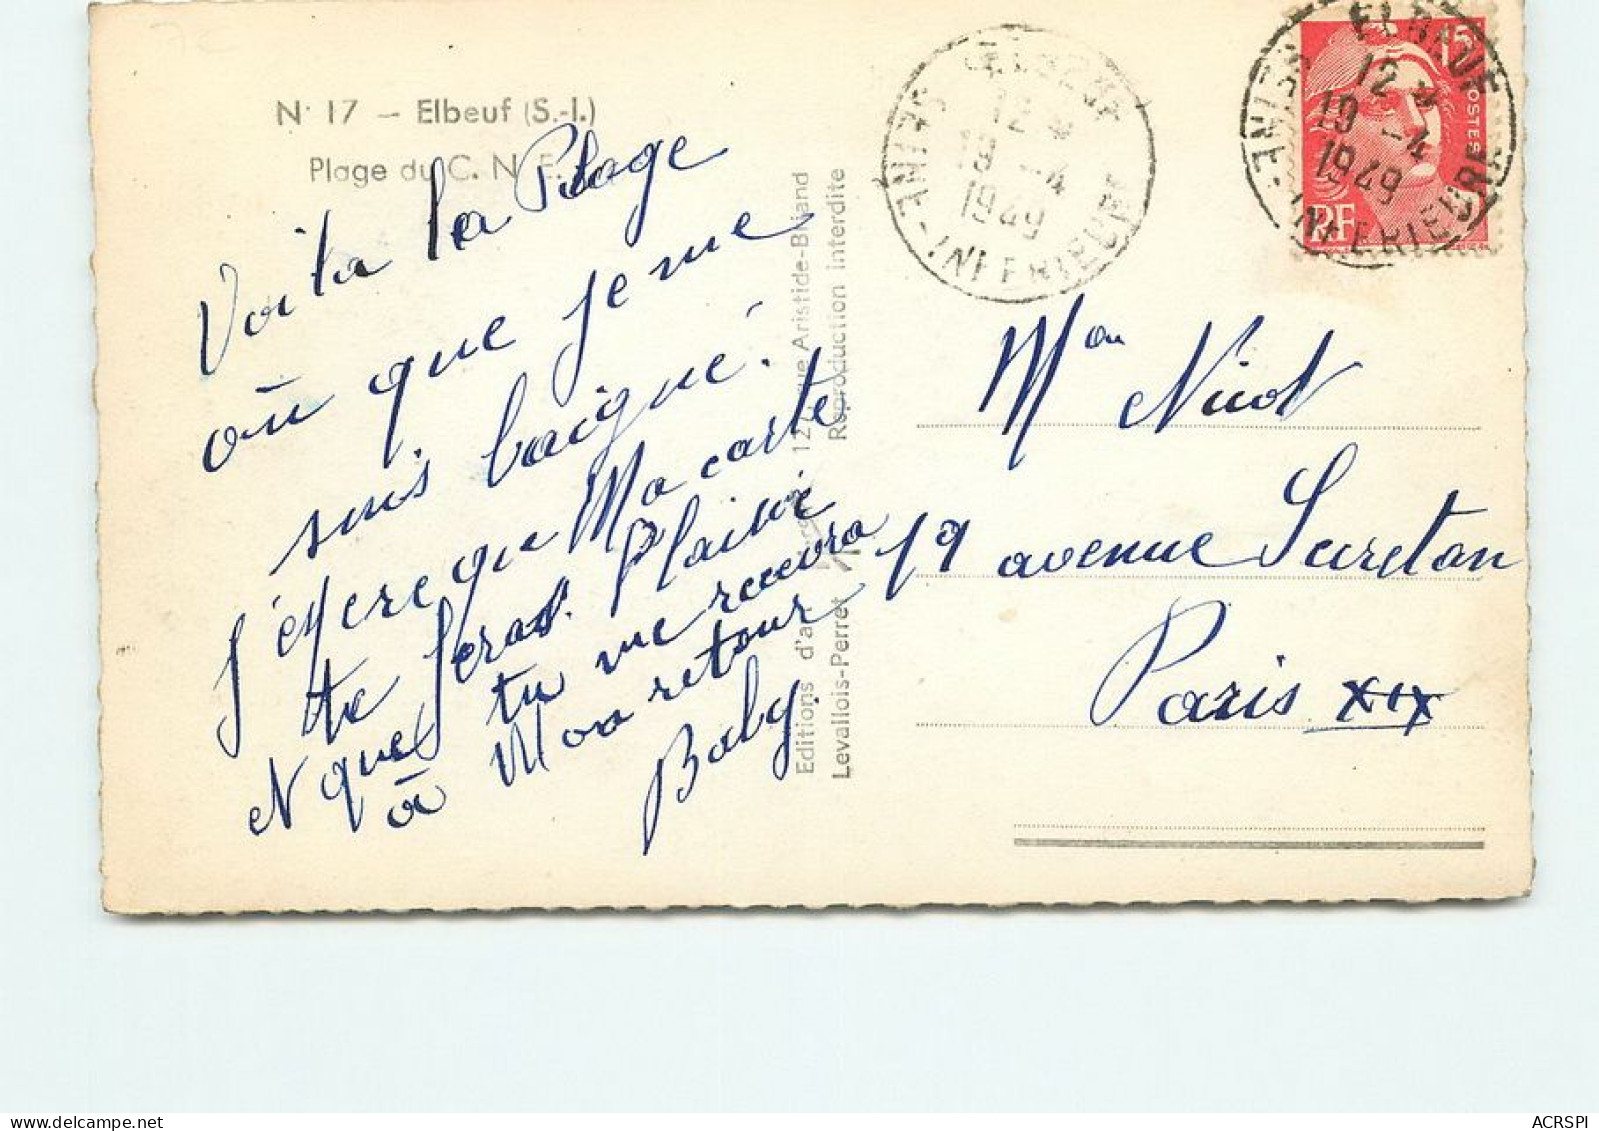 N° 17 — Elbeuf (S.-I.)
Plage du C. N. E.
Voi la la Plage
où que je me
suis baigné.
J'espere que Ma carte
te feras Plaisir
et que tu me recevra
à Mon retour
Baby.
Editions d'art rue Aristide-Briand
Levallois-Perret Reproduction interdite
ELBEUF
12 *
19 -4
1949
SEINE-INFERIEURE
ELBEUF
12 *
19 -4
1949
SEINE-INFERIEURE
15F
POSTES
RF
Mon Nicot
19 avenue Secretan
Paris XIX
ACRSPI